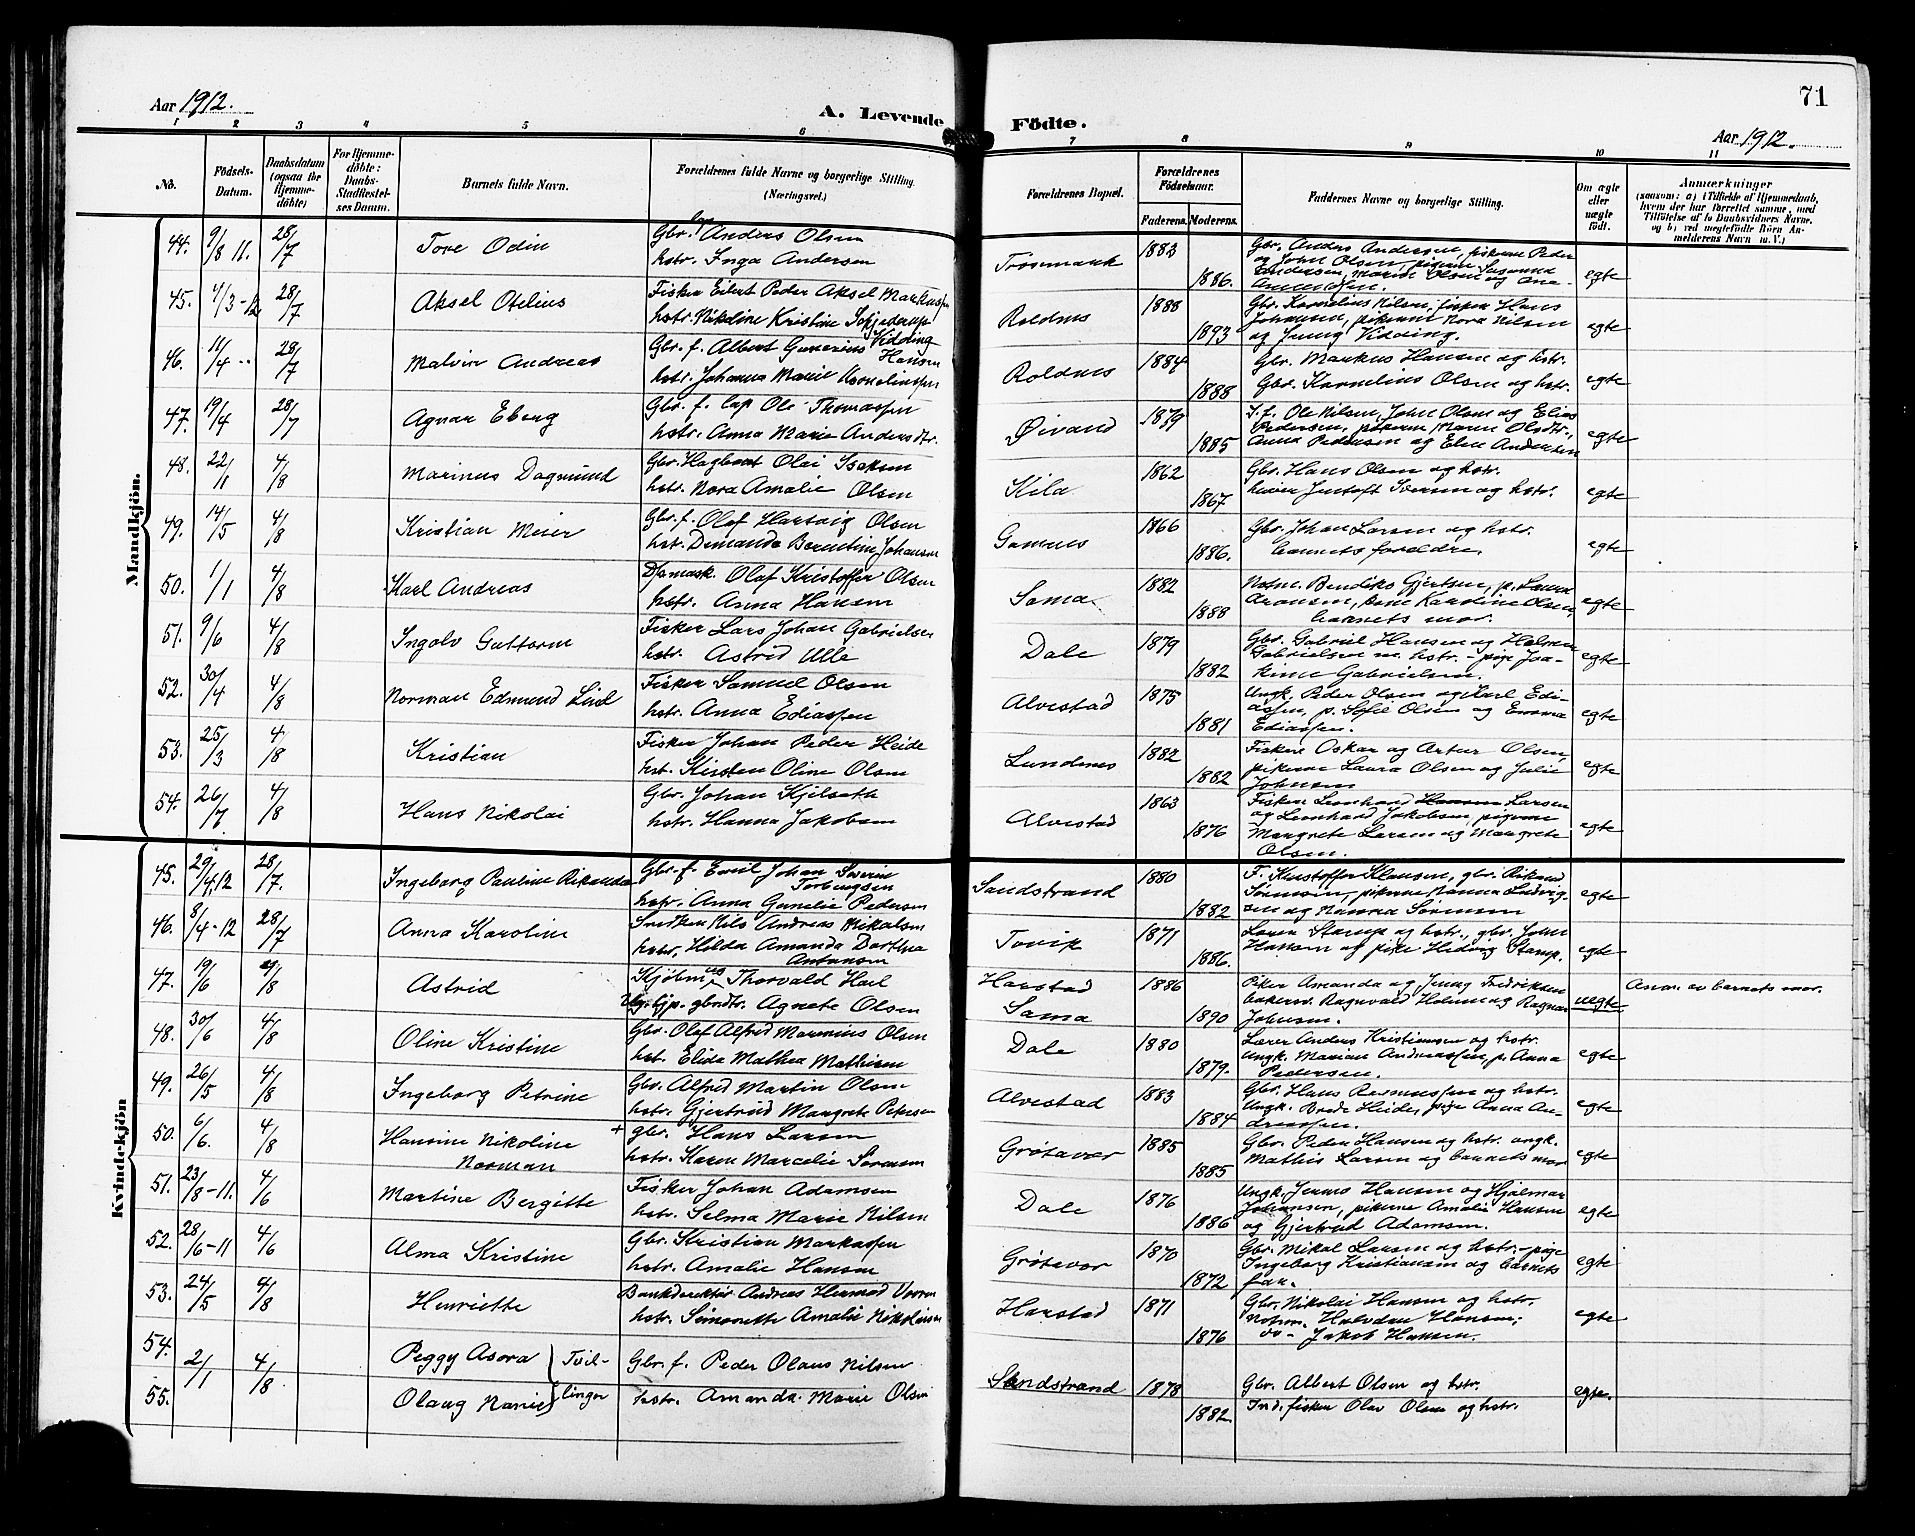 Aar 1912.
A. Levende Fødte.
71
Aar 1912.
1 2 3 4 5 6 7 8 9 10 11
No.
Födsels-Datum.
Daabsdatum (ogsaa for Hjemmedöbte)
For Hjemmedöbte: Daabs-Stadfæstelses Datum.
Barnets fulde Navn.
Forældrenes fulde Navne og borgerlige Stilling. (Næringsvei.)
Forældrenes Bopæl.
Forældrenes Födselsaar.
Faderens. Moderens.
Faddernes Navne og borgerlige Stilling.
Om ægte eller uægte födt.
Anmærkninger
(saasom: a) i Tilfælde af Hjemmedaab, hvem der har forrettet samme, med Tilföielse af to Daabsvidners Navne, og b) ved uægtefödte Börn Anmelderens Navn m. V.)
Mandkjön.
44. 9/8 11. 28/7 Tore Odin Gbr. Anders Olsen
hstr. Inga Andersen
Tøsemark 1883 1886. Gbr. Anders Andersen, pikerne Peder
og John Olsen, pikerne Susanna
Andersen, Marie Olsen og Ane
Amundsen. egte
45. 4/3-12 28/7 Aksel Otelius Fisker Eilert Peder Aksel Markussen
hstr. Nikoline Kristine Schjelderup Vidding
Roldnes 1888 1893 Gbr. Kornelius Nilsen, fisker Hans
Johansen, pikerne Nora Nilsen
og Jenny Vidding. egte
46. 11/4 " 28/7 Malvin Andreas Gbr. f. Albert Gunerius Hansen
hstr. Johanna Marie Korneliussen
Roldnes 1884 1888 Gbr. Markus Hansen og hstr.
Gbr. Kornelius Olsen og hstr. egte
47. 19/4 28/7 Agnar Eberg Gbr. f. Cap Ole Thomassen
hstr. Anna Marie Andersdtr.
Øivand 1879 1885 S.f. Ole Nilsen, John Olsen og Elias
Pedersen, pikerne Marie Olsdtr.,
Anna Pedersen og Elen Andersen egte
48. 22/1 4/8 Marinus Dagmund Gbr. Hagbart Olai Isaksen
hstr. Nora Amalie Olsen
Kila 1862 1867. Gbr. Hans Olsen og hstr.
lærer Jentoft Iversen og hstr. egte
49. 14/5 4/8 Kristian Meier Gbr. f. Olaf Hartvig Olsen
hst. Demanda Berntine Johansen
Gamnes 1866 1886. Gbr. Johan Larsen og hstr.
barnets foreldre. egte
50. 1/1 4/8 Karl Andreas Dpmask. Olaf Kristoffer Olsen
hstr. Anna Hansen
Sama 1882 1888 Notm. Bendiks Gjertsen, p. Laura
Aronsen, Karoline Olsen,
barnets mor. egte
51. 9/6 4/8 Ingolv Guttorm Fisker Lars Johan Gabrielsen
hstr. Astrid Ulle
Dale 1879 1882 Gbr. Gabriel Hansen og Halvor
Gabrielsen m. hstr. - pige Joakime Gabrielsen. egte
52. 30/4 4/8 Norman Edmund Lind Fisker Samuel Olsen
hstr. Anna Ediassen
Alvestad 1875 1881 Ungk. Peder Olsen og Karl Ediassen, p. Sofie Olsen og Emma
Ediassen. egte
53. 25/3 4/8 Kristian Fisker Johan Peder Heide
hst. Kirsten Oline Olsen
Lundenes 1882 1882 Fiskere Oskar og Artur Olsen,
pikerne Laura Olsen og Julie
Johnsen egte
54. 26/7 4/8 Hans Nikolai Gbr. Johan Kjelseth
hstr. Hanna Jakobsen
Alvestad 1863 1876 Fisker Leonhard Hansen Larsen
og Leonhard Jakobsen, pigerne
Margrete Larsen og Margrete
Olsen. egte
Kvindekjön
45. 29/4.12 28/7. Ingeborg Pauline Rikanda Gbr. f. Emil Johan Severin Torbergsen
hstr. Anna Gunelie Pedersen
Sandstrand 1880 1882 F. Kristoffer Klausen, gbr. Rikard
Sørensen, pikerne Nanna Ludvigsen og Nanna Sørensen egte
46. 8/4-12 28/7 Anna Karoline Snedker Nils Andreas Nikolaisen
hstr. Hilda Amanda Dorthea Antonsen
Tovik 1871 1886. Lærer Stamp og hstr., gbr. John
Hansen og pike Hedvig Stamp. egte
47. 19/6 4/8 Astrid Kjøbm. ug Thorvald Hoel
Ug. hjp. gbrdtr. Agnete Olsen
Harstad
Sama 1886 1890 Piker Amanda og Jenny Fredriksen
bakersv. Ragnvald Holm og Ragnar
Johnsen. uegte Anm. av barnets mor.
48. 30/6 4/8 Oline Kristine Gbr. Olaf Alfred Marenius Olsen
hst. Elida Mathea Mathisen
Dale 1880 1879. Lærer Anders Kristiansen og hstr.
Ungk. Marian Andreassen, p. Anna
Pedersen. egte
49. 26/5 4/8 Ingeborg Petrine Gbr. Alfred Martin Olsen
hstr. Gjertrud Margrete Petersen
Alvestad 1883 1884 Gbr. Hans Rasmussen og hstr.
Ungk. Brede Heide, pige Anna Andreassen. egte
50. 6/6. 4/8 Hansine Nikoline Norman + gbr. Hans Larsen
hstr. Karen Marcelie Sørensen
Grøtavær 1885 1885 Gbr. Peder Hansen og hstr. ungk.
Mathis Larsen og barnets mor egte
51. 23/8-11. 4/6 Martine Bergitte Fisker Johan Adamsen
hstr. Selma Marie Nilsen
Dale 1876 1886 Ungk. Jens Hansen og Hjalmar
Johansen, pikerne Amalie Hansen
og Gjertrud Adamsen. egte
52. 28/6-11 4/6 Alma Kristine Gbr. Kristian Markussen
hstr. Amalie Hansen
Grøtavær 1870 1872 Gbr. Mikal Larsen og hstr. - pige
Ingeborg Kristiansen og barnets
far. egte
53. 24/5 4/8 Henriette Bankdirektør Andreas Hermod Voren
hstr. Simonette Amalie Nikolaisen
Harstad 1871 1876 Gbr. Nikolai Hansen og hstr.
Notm. Halvdan Hansen;
do - Jakob Hansen. egte
54. 2/1 4/8 Peggy Asora } Tvil-
55. Olaug Nanie } linger
Gbr. f. Peder Olaus Nilsen
hstr. Amanda Marie Olsen
Sandstrand 1878 1882. Gbr. Albert Olsen og hstr.
Ind. fisker Olav Olsen og hstr. egte.